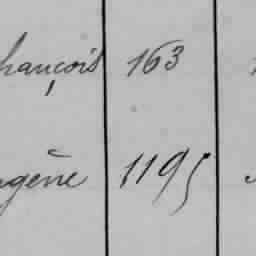 hançois 163
gène 1195